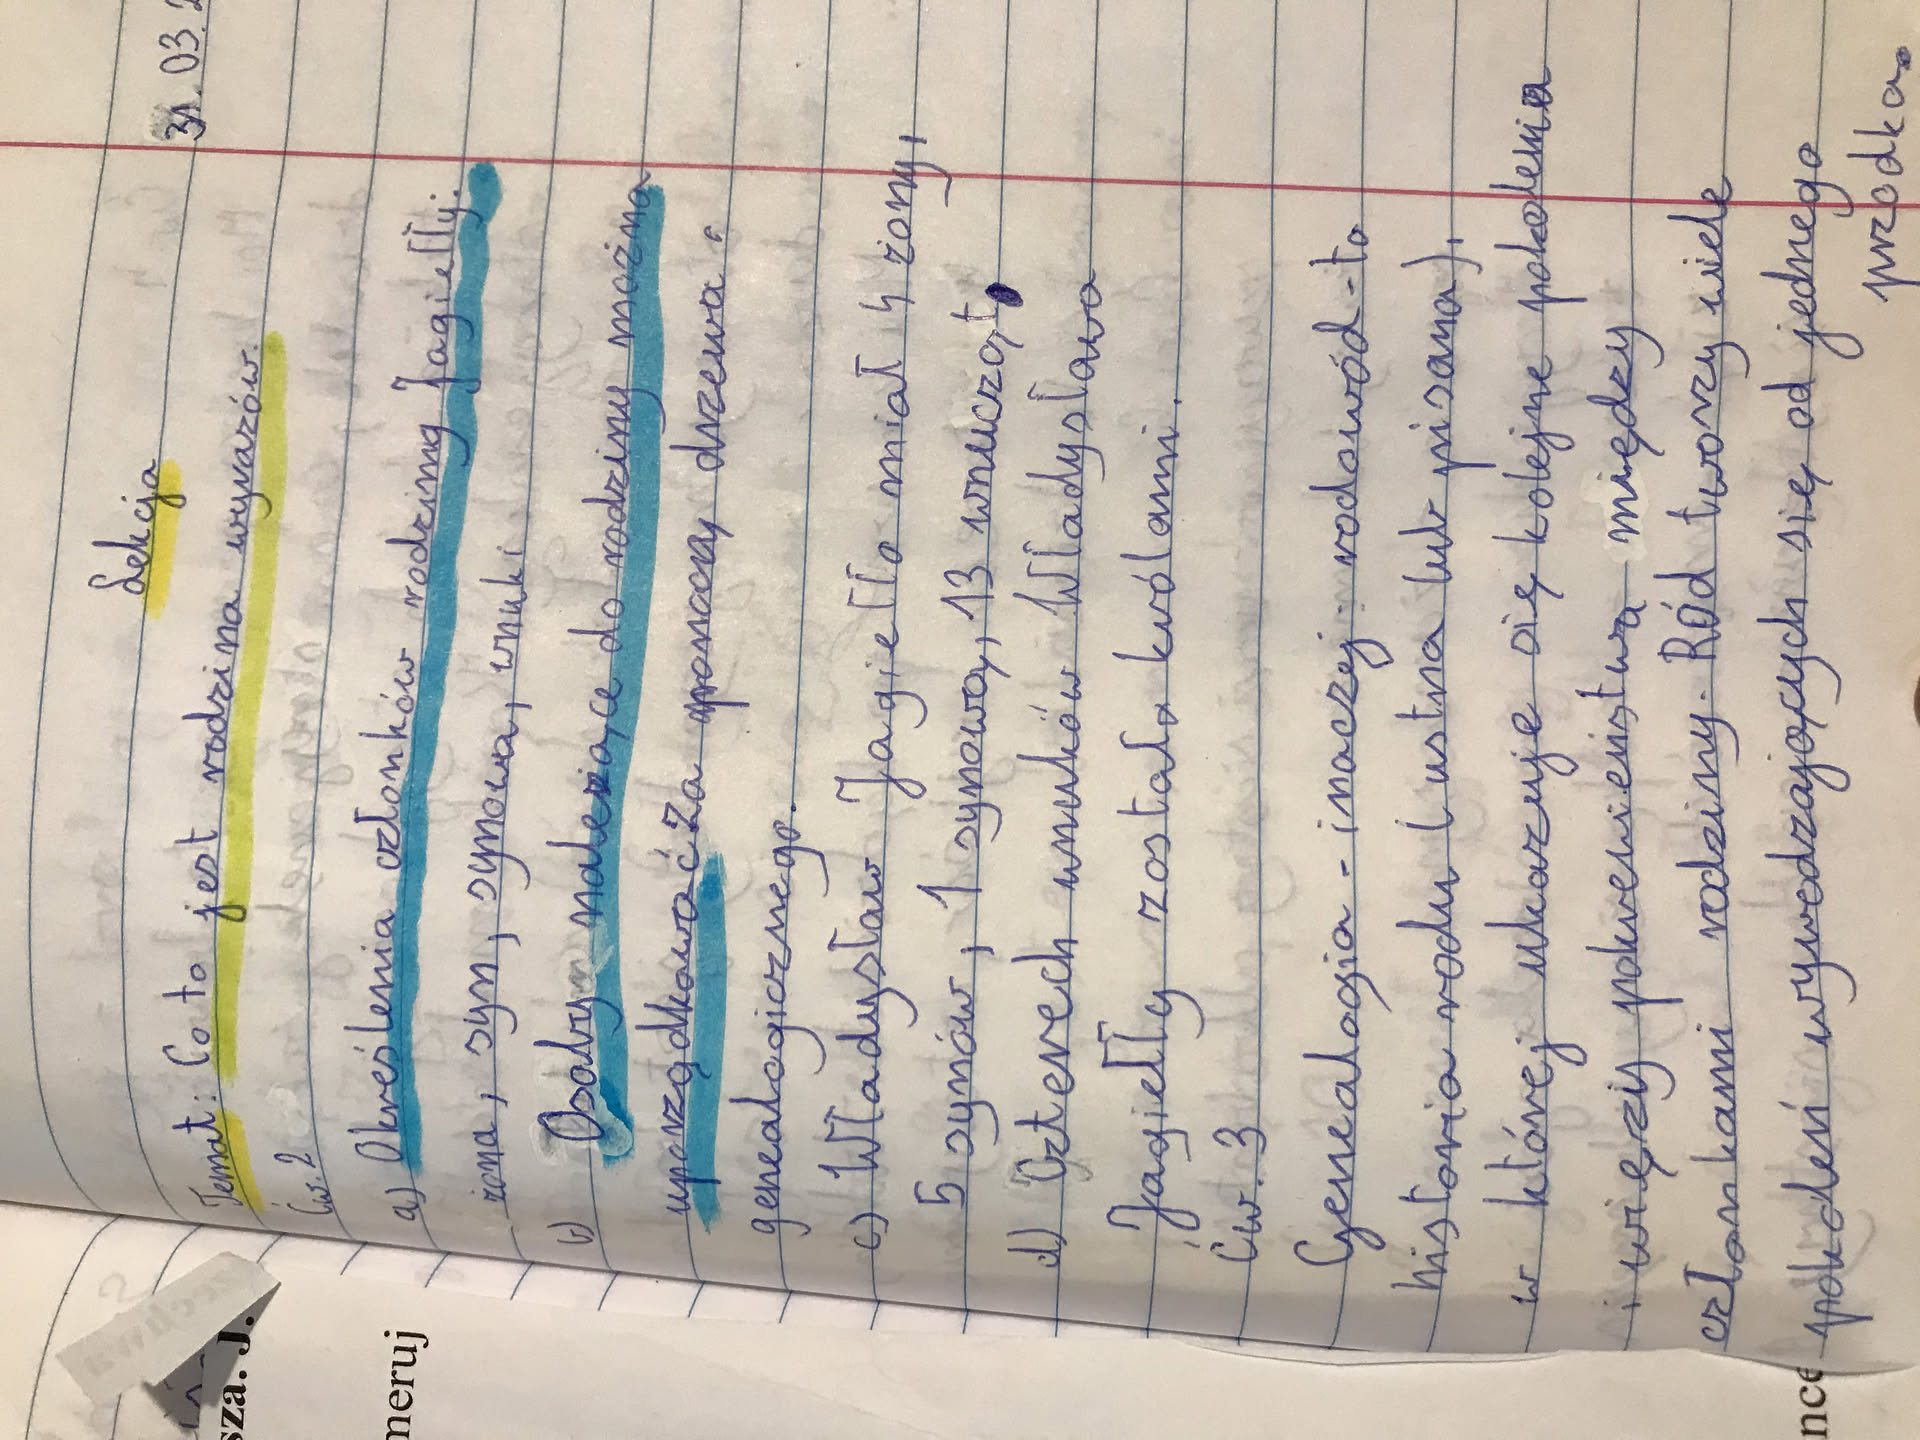 31.03.2
Lekcja
Temat: Co to jest rodzina wyrazów.
Ćw. 2
a) Określenia członków rodziny Jagiełły.
żona, syn, synowa, wnuki
b) Osoby należące do rodziny można
uporządkować za pomocą drzewa
genealogicznego.
c) Władysław Jagiełło miał 4 żony,
5 synów, 1 synową, 13 wnucząt.
d) Czterech wnuków Władysława
Jagiełły zostało królami.
Ćw. 3
Genealogia - inaczej rodowód - to
historia rodu (ustna lub pisana),
w której ukazuje się kolejne pokolenia
i więzy pokrewieństwa między
członkami rodziny. Ród tworzy wiele
pokoleń wywodzających się od jednego
przodka.
sza. J.
meruj
nce